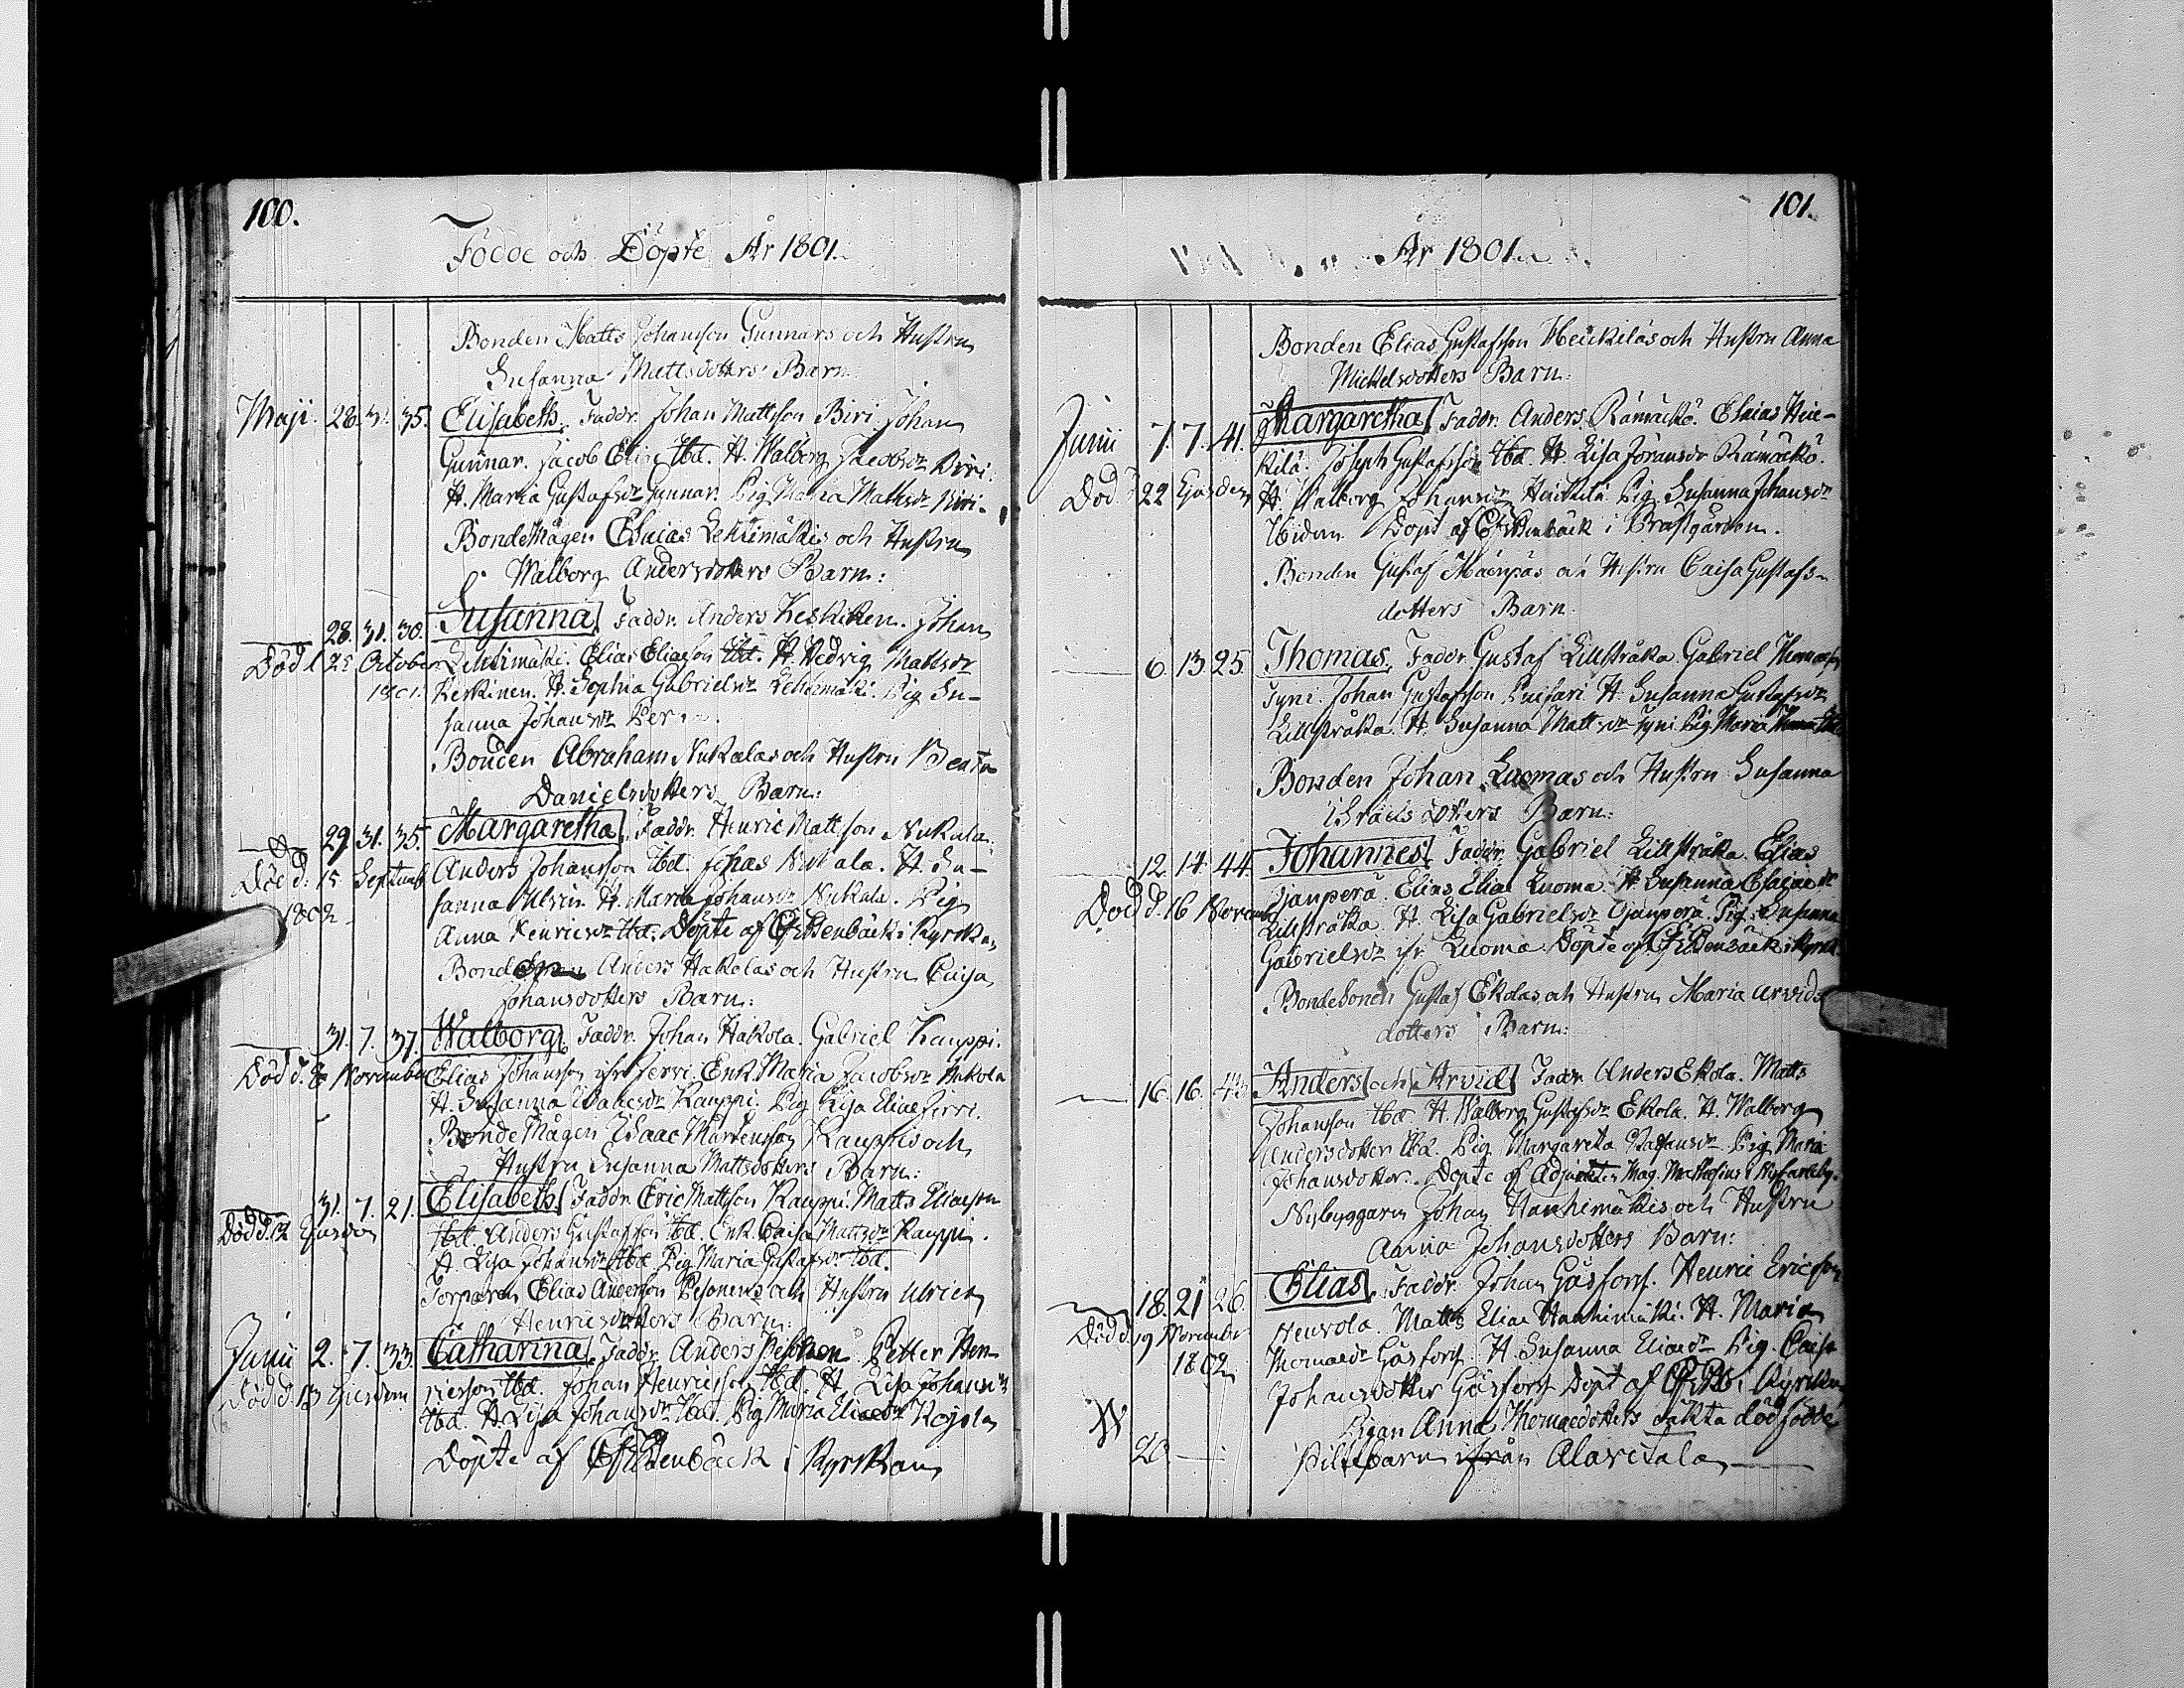 100.
Födde och Döpte År 1801.
Bonden Matts Johansson Gunnars och Hustru
Susanna Mattsdotters Barn.
Maji. 28. 31. 35. Elisabeth. Faddr. Johan Mattsson Biri. Johan
Gunnar. Jacob Ibd. H. Walborg Jacobsdr Biri.
H. Maria Gustafsdr Gunnar. Pig. Maria Mattsdr Biri.
BondeMågen Esaias Lehtimäkis och Hustru
Walborg Andersdotters Barn:
28. 31. 30. Susanna. Faddr. Anders Keskinen. Johan
Död d. 25 October Lehtimäki. Elias Eliæson Ibd. H. Hedvig Mattsdr
1801. Keskinen. H. Sophia Gabrielsdr Lehtimäki. Pig Su-
sanna Johansdr
Bonden Abraham Nukalas och Hustru Beata
Danielsdotters Barn:
29. 31. 35. Margaretha. Faddr. Henric Mattsson Nukala.
Död d. 15 Septemb Anders Johansson Ibd. Johas Nukala. H. Su-
1802 sanna H. Maria Johansdr Nukala. Pig
Anna Henricsdr Ibd. Döpte af i Kyrkan
Bonde Anders Hakolas och Hustru Caisa
Johansdotters Barn:
31. 7. 37. Walborg. Faddr. Johan Hakola. Gabriel Kauppi.
Död d. 8 November Elias Johansson ifr Jerri. Enk. Maria Jacobsdr Hakola
H. Susanna Isaacsdr Kauppi. Pig Lisa Eliæ Jerri.
BondeMågen Isaac Mårtensson Kauppis och
Hustru Susanna Mattsdotters Barn:
31. 7. 21. Elisabeth. Faddr. Eric Mattsson Kauppi. Matts Eliæson
Död d. 12 Ejusdem Ibd. Anders Gustafsson Ibd. Enk. Caisa Mattsdr Kauppi.
H. Lisa Johansdr Ibd. Pig Maria Gustafsdr Ibd.
Torparen Elias Andersson Pesonens och Hustru Ulrica
Henricsdotters Barn:
Junii 2. 7. 33. Catharina. Faddr. Anders Pesonen Petter Hen-
Död d. 13 Ejusdem ricsson Ibd. Johan Henricsson Ibd. H. Lisa Johansdr
Ibd. H. Lisa Johansdr Ibd. Pig Maria Eliædr Kojola
Döpte af i Kyrkan
101.
År 1801.
Bonden Elias Gustafsson Heickiläs och Hustru Anna
Mickelsdotters Barn:
Junii 7. 7. 41. Margaretha. Faddr. Anders Rämäckö. Esaias Hei-
kilä. Joseph Gustafsson Ibd. H. Lisa Göransdr Rämäckö.
Död d. 22 Ejusdem H. Walborg Johansdr Heickilä. Pig. Susanna Johansdr
Ibidem. Döpt af i Prästgården.
Bonden Gustaf Mäenpäs och Hustru Caisa Gustafs-
dotters Barn.
6. 13. 25. Thomas. Faddr. Gustaf Lillstråka. Gabriel Thomæson
Tyni. Johan Gustafsson Puisari. H. Susanna Gustafsdr
Lillstråka. H. Susanna Mattsdr Tyni Pig Maria
Bonden Johan Luomas och Hustru Susanna
Isracsdotters Barn:
12. 14. 44. Johannes. Faddr. Gabriel Lillstråka. Elias
Död d. 16 Novemb Ojanperä. Elias Eliæ Luoma. H. Susanna Esaiædr
Lillstråka. H. Lisa Gabrielsdr Ojanperä. Pig. Susanna
Gabrielsdr ifr Luoma. Döpte af i Kyrk.
BondeSonen Gustaf Ekolas och Hustru Maria Arvids
dotters Barn:
16. 16. 43. Anders och Arvid. Faddr. Anders Ekola. Matts
Johansson Ibd. H. Walborg Gustafsdr Ekola. H. Walborg
Andersdotter Ibd. Pig. Margareta Pig. Maria
Johansdotter. Döpte af Adjuncten Mag. Mathesius i
Nybyggaren Johan Hanhimäkis och Hustru
Anna Johansdotters Barn:
18. 21. 26. Elias. Faddr. Johan Gäsfors. Henric Ericsson
Död d. 19 November Heurola. Matts Eliæ Hanhimäki. H. Maria
1802 Thomædr Gäsfors. H. Susanna Eliædr Pig. Caisa
Johansdotter Gäsfors. Döpt af i Kyrkan
Pigan Anna Thomædotters oäkta dödfödde
20. — Piltebarn ifrån Alavetala